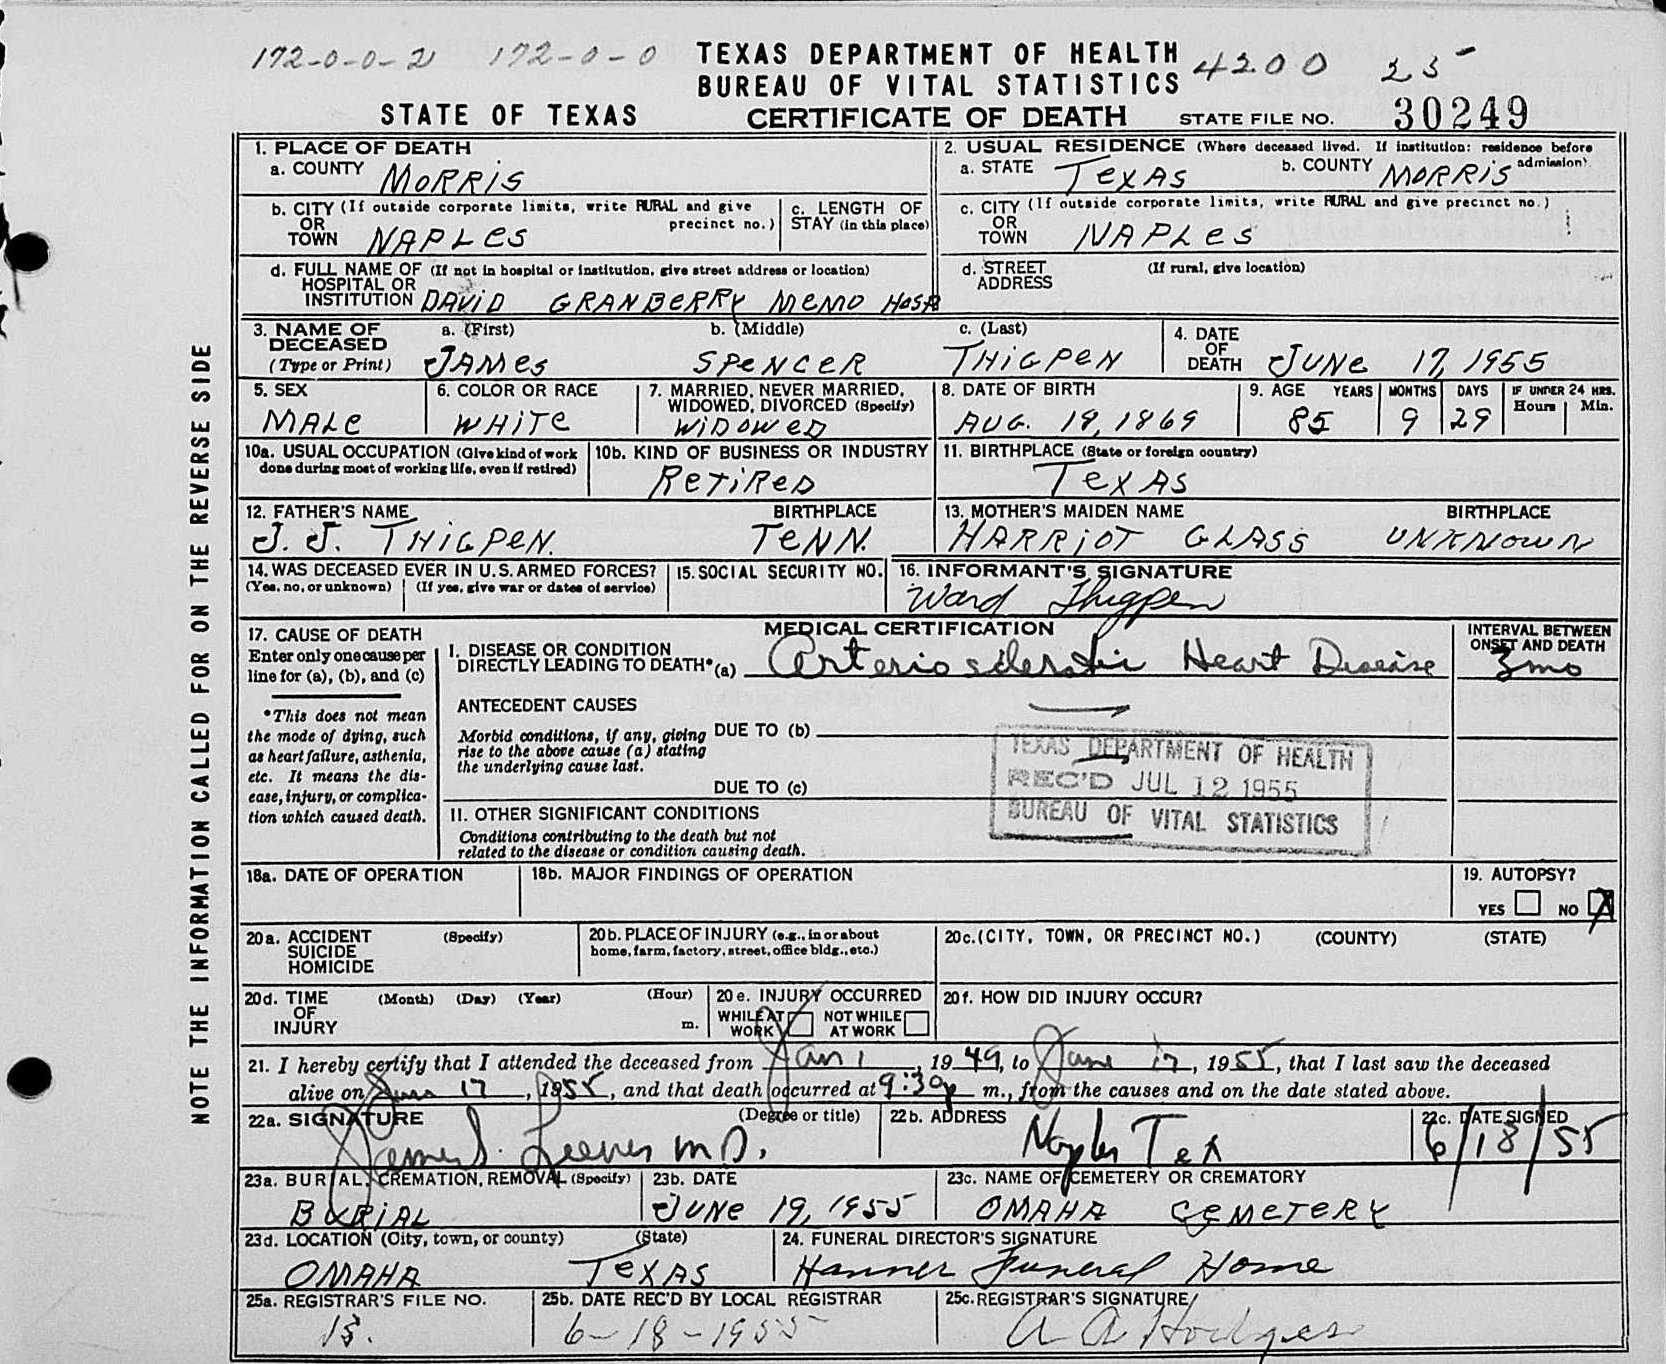 172-0-0-2 172-0-0 TEXAS DEPARTMENT OF HEALTH 4200 25
BUREAU OF VITAL STATISTICS
STATE OF TEXAS CERTIFICATE OF DEATH STATE FILE NO. 30249
NOTE THE INFORMATION CALLED FOR ON THE REVERSE SIDE
1. PLACE OF DEATH
a. COUNTY MORRIS
2. USUAL RESIDENCE (Where deceased lived. If institution: residence before admission)
a. STATE TEXAS b. COUNTY MORRIS
b. CITY (If outside corporate limits, write RURAL and give precinct no.)
OR
TOWN NAPLES
c. LENGTH OF
STAY (in this place)
c. CITY (If outside corporate limits, write RURAL and give precinct no.)
OR
TOWN NAPLES
d. FULL NAME OF (If not in hospital or institution, give street address or location)
HOSPITAL OR
INSTITUTION DAVID GRANBERRY MEMO HOSP
d. STREET (If rural, give location)
ADDRESS
3. NAME OF a. (First) b. (Middle) c. (Last)
DECEASED
(Type or Print) JAMES SPENCER THIGPEN
4. DATE
OF
DEATH JUNE 17, 1955
5. SEX
MALE
6. COLOR OR RACE
WHITE
7. MARRIED, NEVER MARRIED,
WIDOWED, DIVORCED (Specify)
WIDOWED
8. DATE OF BIRTH
AUG. 19, 1869
9. AGE YEARS MONTHS DAYS IF UNDER 24 HRS.
Hours Min.
85 9 29
10a. USUAL OCCUPATION (Give kind of work
done during most of working life, even if retired)
10b. KIND OF BUSINESS OR INDUSTRY
RETIRED
11. BIRTHPLACE (State or foreign country)
TEXAS
12. FATHER'S NAME BIRTHPLACE
J. J. THIGPEN. TENN.
13. MOTHER'S MAIDEN NAME BIRTHPLACE
HARRIOT GLASS UNKNOWN
14. WAS DECEASED EVER IN U.S. ARMED FORCES?
(Yes, no, or unknown) (If yes, give war or dates of service)
15. SOCIAL SECURITY NO.
16. INFORMANT'S SIGNATURE
Ward Thigpen
MEDICAL CERTIFICATION
17. CAUSE OF DEATH
Enter only one cause per
line for (a), (b), and (c)
*This does not mean
the mode of dying, such
as heart failure, asthenia,
etc. It means the dis-
ease, injury, or complica-
tion which caused death.
I. DISEASE OR CONDITION
DIRECTLY LEADING TO DEATH* (a) Arteriosclerotic Heart Disease
INTERVAL BETWEEN
ONSET AND DEATH
3 mo
ANTECEDENT CAUSES
Morbid conditions, if any, giving
rise to the above cause (a) stating
the underlying cause last.
DUE TO (b)
DUE TO (c)
TEXAS DEPARTMENT OF HEALTH
REC'D JUL 12 1955
BUREAU OF VITAL STATISTICS
II. OTHER SIGNIFICANT CONDITIONS
Conditions contributing to the death but not
related to the disease or condition causing death.
18a. DATE OF OPERATION
18b. MAJOR FINDINGS OF OPERATION
19. AUTOPSY?
YES NO X
20a. ACCIDENT (Specify)
SUICIDE
HOMICIDE
20b. PLACE OF INJURY (e.g., in or about
home, farm, factory, street, office bldg., etc.)
20c. (CITY, TOWN, OR PRECINCT NO.) (COUNTY) (STATE)
20d. TIME (Month) (Day) (Year) (Hour)
OF
INJURY m.
20e. INJURY OCCURRED
WHILE AT WORK NOT WHILE AT WORK
20f. HOW DID INJURY OCCUR?
21. I hereby certify that I attended the deceased from Jan 1, 1949, to June 17, 1955, that I last saw the deceased
alive on June 17, 1955, and that death occurred at 9:30p m., from the causes and on the date stated above.
22a. SIGNATURE (Degree or title)
James S. Leeves M.D.
22b. ADDRESS
Naples Tex
22c. DATE SIGNED
6/18/55
23a. BURIAL, CREMATION, REMOVAL (Specify)
BURIAL
23b. DATE
JUNE 19, 1955
23c. NAME OF CEMETERY OR CREMATORY
OMAHA CEMETERY
23d. LOCATION (City, town, or county) (State)
OMAHA TEXAS
24. FUNERAL DIRECTOR'S SIGNATURE
Hanner Funeral Home
25a. REGISTRAR'S FILE NO.
15.
25b. DATE REC'D BY LOCAL REGISTRAR
6-18-1955
25c. REGISTRAR'S SIGNATURE
A A Hodges